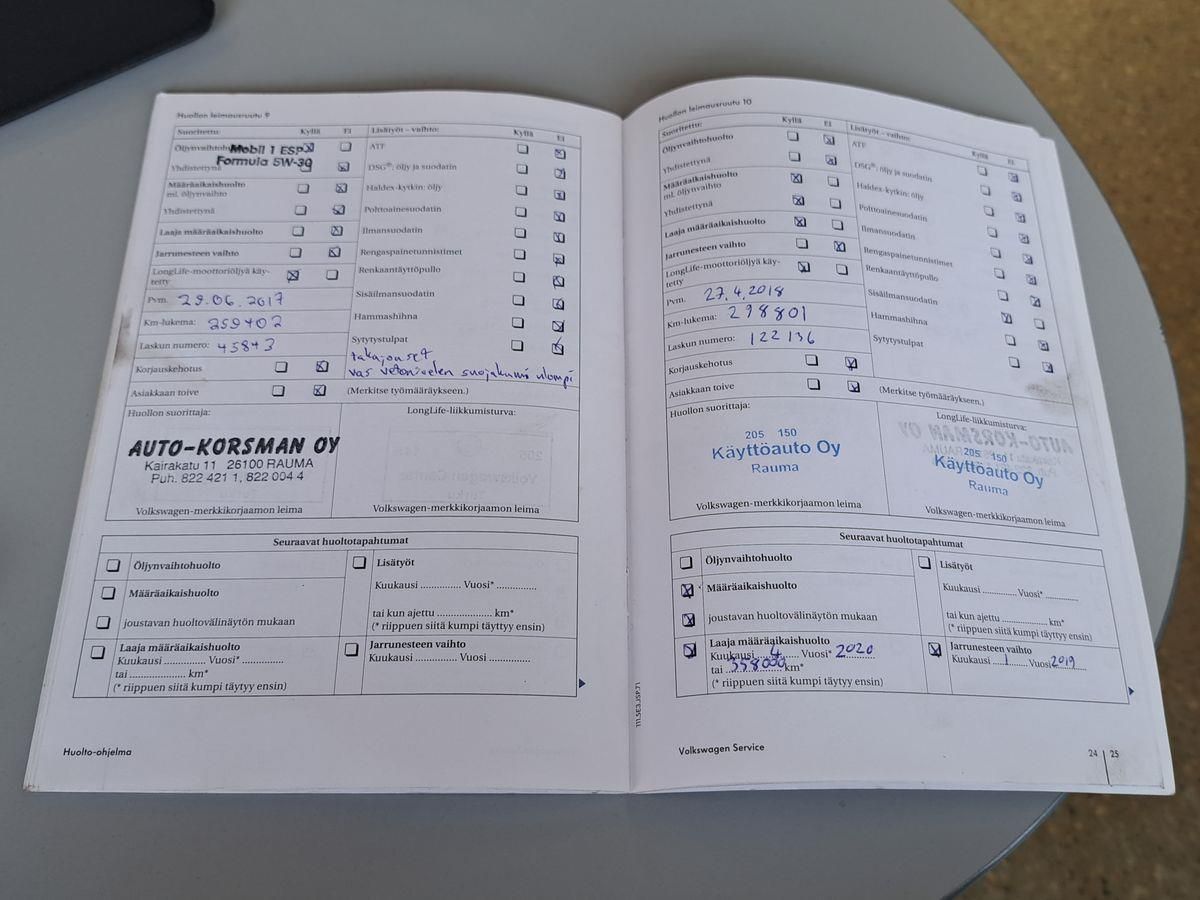 Huollon leimausruutu 9
Suoritettu: Kyllä Ei Lisätyöt – vaihto: Kyllä Ei
Öljynvaihtohuolto ATF
Mobil 1 ESP
Formula 5W-30
Yhdistettynä DSG®: öljy ja suodatin
Määräaikaishuolto Haldex-kytkin: öljy
ml. öljynvaihto
Yhdistettynä Polttoainesuodatin
Laaja määräaikaishuolto Ilmansuodatin
Jarrunesteen vaihto Rengaspainetunnistimet
LongLife-moottoriöljyä käy- Renkaantäyttöpullo
tetty
Pvm. 29.06.2017 Sisäilmansuodatin
Km-lukema: 259402 Hammashihna
Laskun numero: 45843 Sytytystulpat
vas vetonivelen suojakumi ulompi
Korjauskehotus
Asiakkaan toive (Merkitse työmääräykseen.)
Huollon suorittaja: LongLife-liikkumisturva:
AUTO-KORSMAN OY
Kairakatu 11 26100 RAUMA
Puh. 822 421 1, 822 004 4
Volkswagen-merkkikorjaamon leima Volkswagen-merkkikorjaamon leima
Seuraavat huoltotapahtumat
Öljynvaihtohuolto Lisätyöt
Määräaikaishuolto Kuukausi ............... Vuosi* ...............
joustavan huoltovälinäytön mukaan tai kun ajettu .................... km*
(* riippuen siitä kumpi täyttyy ensin)
Laaja määräaikaishuolto Jarrunesteen vaihto
Kuukausi ............... Vuosi* ............... Kuukausi ............... Vuosi ...............
tai .................... km*
(* riippuen siitä kumpi täytyy ensin)
Huolto-ohjelma
Huollon leimausruutu 10
Suoritettu: Kyllä Ei Lisätyöt – vaihto: Kyllä Ei
Öljynvaihtohuolto ATF
Yhdistettynä DSG®: öljy ja suodatin
Määräaikaishuolto Haldex-kytkin: öljy
ml. öljynvaihto
Yhdistettynä Polttoainesuodatin
Laaja määräaikaishuolto Ilmansuodatin
Jarrunesteen vaihto Rengaspainetunnistimet
LongLife-moottoriöljyä käy- Renkaantäyttöpullo
tetty
Pvm. 27.4.2018 Sisäilmansuodatin
Km-lukema: 298801 Hammashihna
Laskun numero: 122136 Sytytystulpat
Korjauskehotus
Asiakkaan toive (Merkitse työmääräykseen.)
Huollon suorittaja: LongLife-liikkumisturva:
205 150 205 150
Käyttöauto Oy Käyttöauto Oy
Rauma Rauma
Volkswagen-merkkikorjaamon leima Volkswagen-merkkikorjaamon leima
Seuraavat huoltotapahtumat
Öljynvaihtohuolto Lisätyöt
Määräaikaishuolto Kuukausi ............... Vuosi* ...............
joustavan huoltovälinäytön mukaan tai kun ajettu .................... km*
(* riippuen siitä kumpi täyttyy ensin)
Laaja määräaikaishuolto Jarrunesteen vaihto
Kuukausi 4 Vuosi* 2020 Kuukausi 1 Vuosi 2019
tai 358000 km*
(* riippuen siitä kumpi täytyy ensin)
111.5E3.JSP.71
Volkswagen Service 24 | 25